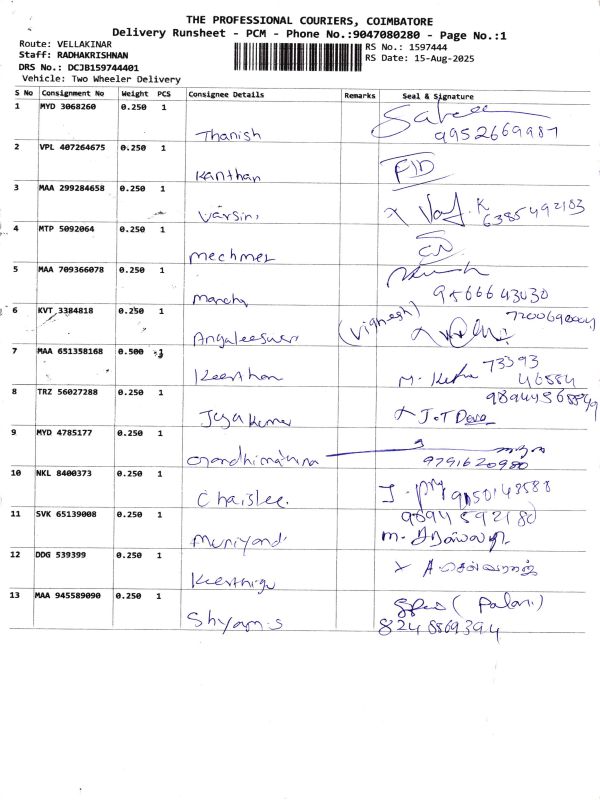 THE PROFESSIONAL COURIERS, COIMBATORE
Delivery Runsheet - PCM - Phone No.:9047080280 - Page No.:1
Route: VELLAKINAR
Staff: RADHAKRISHNAN
DRS No.: DCJB159744401
Vehicle: Two Wheeler Delivery
RS No.: 1597444
RS Date: 15-Aug-2025
S No Consignment No Weight PCS Consignee Details Remarks Seal & Signature
1 MYD 3068260 0.250 1
Thanish 9952669987
2 VPL 407264675 0.250 1
Kanthan
3 MAA 299284658 0.250 1
Varsini 6385492183
4 MTP 5092064 0.250 1
mechmel
5 MAA 709366078 0.250 1
9566643030
6 KVT 3384818 0.250 1
(Vignesh)
7 MAA 651358168 0.500 1
Keerthan 73393
8 TRZ 56027288 0.250 1
Jeyakumar
9 MYD 4785177 0.250 1
Gandhimathina 9791620980
10 NKL 8400373 0.250 1
Chaislee.
11 SVK 65139008 0.250 1
Muniyandi
12 DDG 539399 0.250 1
Keerthigu
13 MAA 945589090 0.250 1
(Palani)
Shyam.s 8248869394